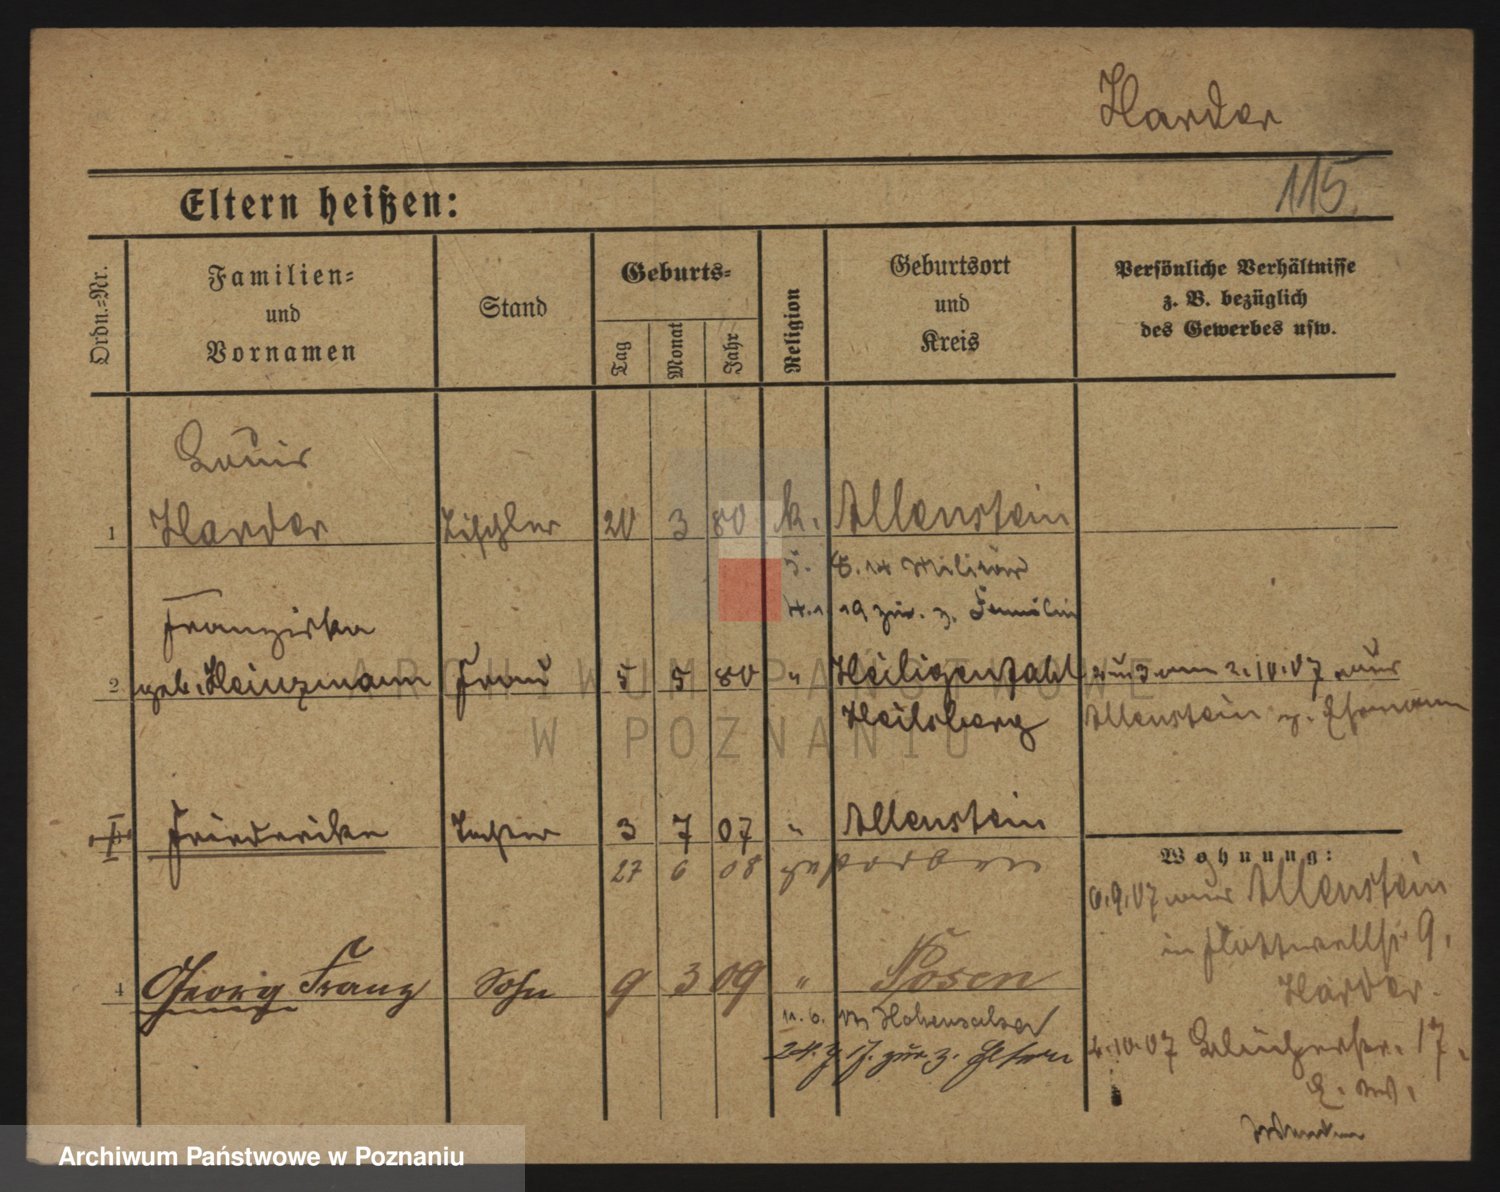 Harder
115.
Eltern heißen:
Ordn.-Nr.
Familien-
und
Vornamen
Stand
Geburts-
Tag
Monat
Jahr
Religion
Geburtsort
und
Kreis
Persönliche Verhältnisse
z. B. bezüglich
des Gewerbes usw.
Louis
1 Harder Tischler 20 3 80 k. Allenstein
5. 8. 14 Militär
19 zur. z. Familie
Franziska
2 geb. Heinzmann Frau 5 5 80 " Heiligenthal 2 u 3 am 2.10.07 aus
Heilsberg Allenstein z. Ehemann
Friederike Tochter 3 7 07 " Allenstein
27 6 08 gestorben
4 Georg Franz Sohn 9 3 09 " Posen
11. 6. Hohensalza
24. 7 17. zur. z. Eltern
Wohnung:
6.9.07 aus Allenstein
in Flottwellstr 9,
Harder.
2.10.07 Blücherstr. 17.
ARCHIWUM PAŃSTWOWE
W POZNANIU
Archiwum Państwowe w Poznaniu